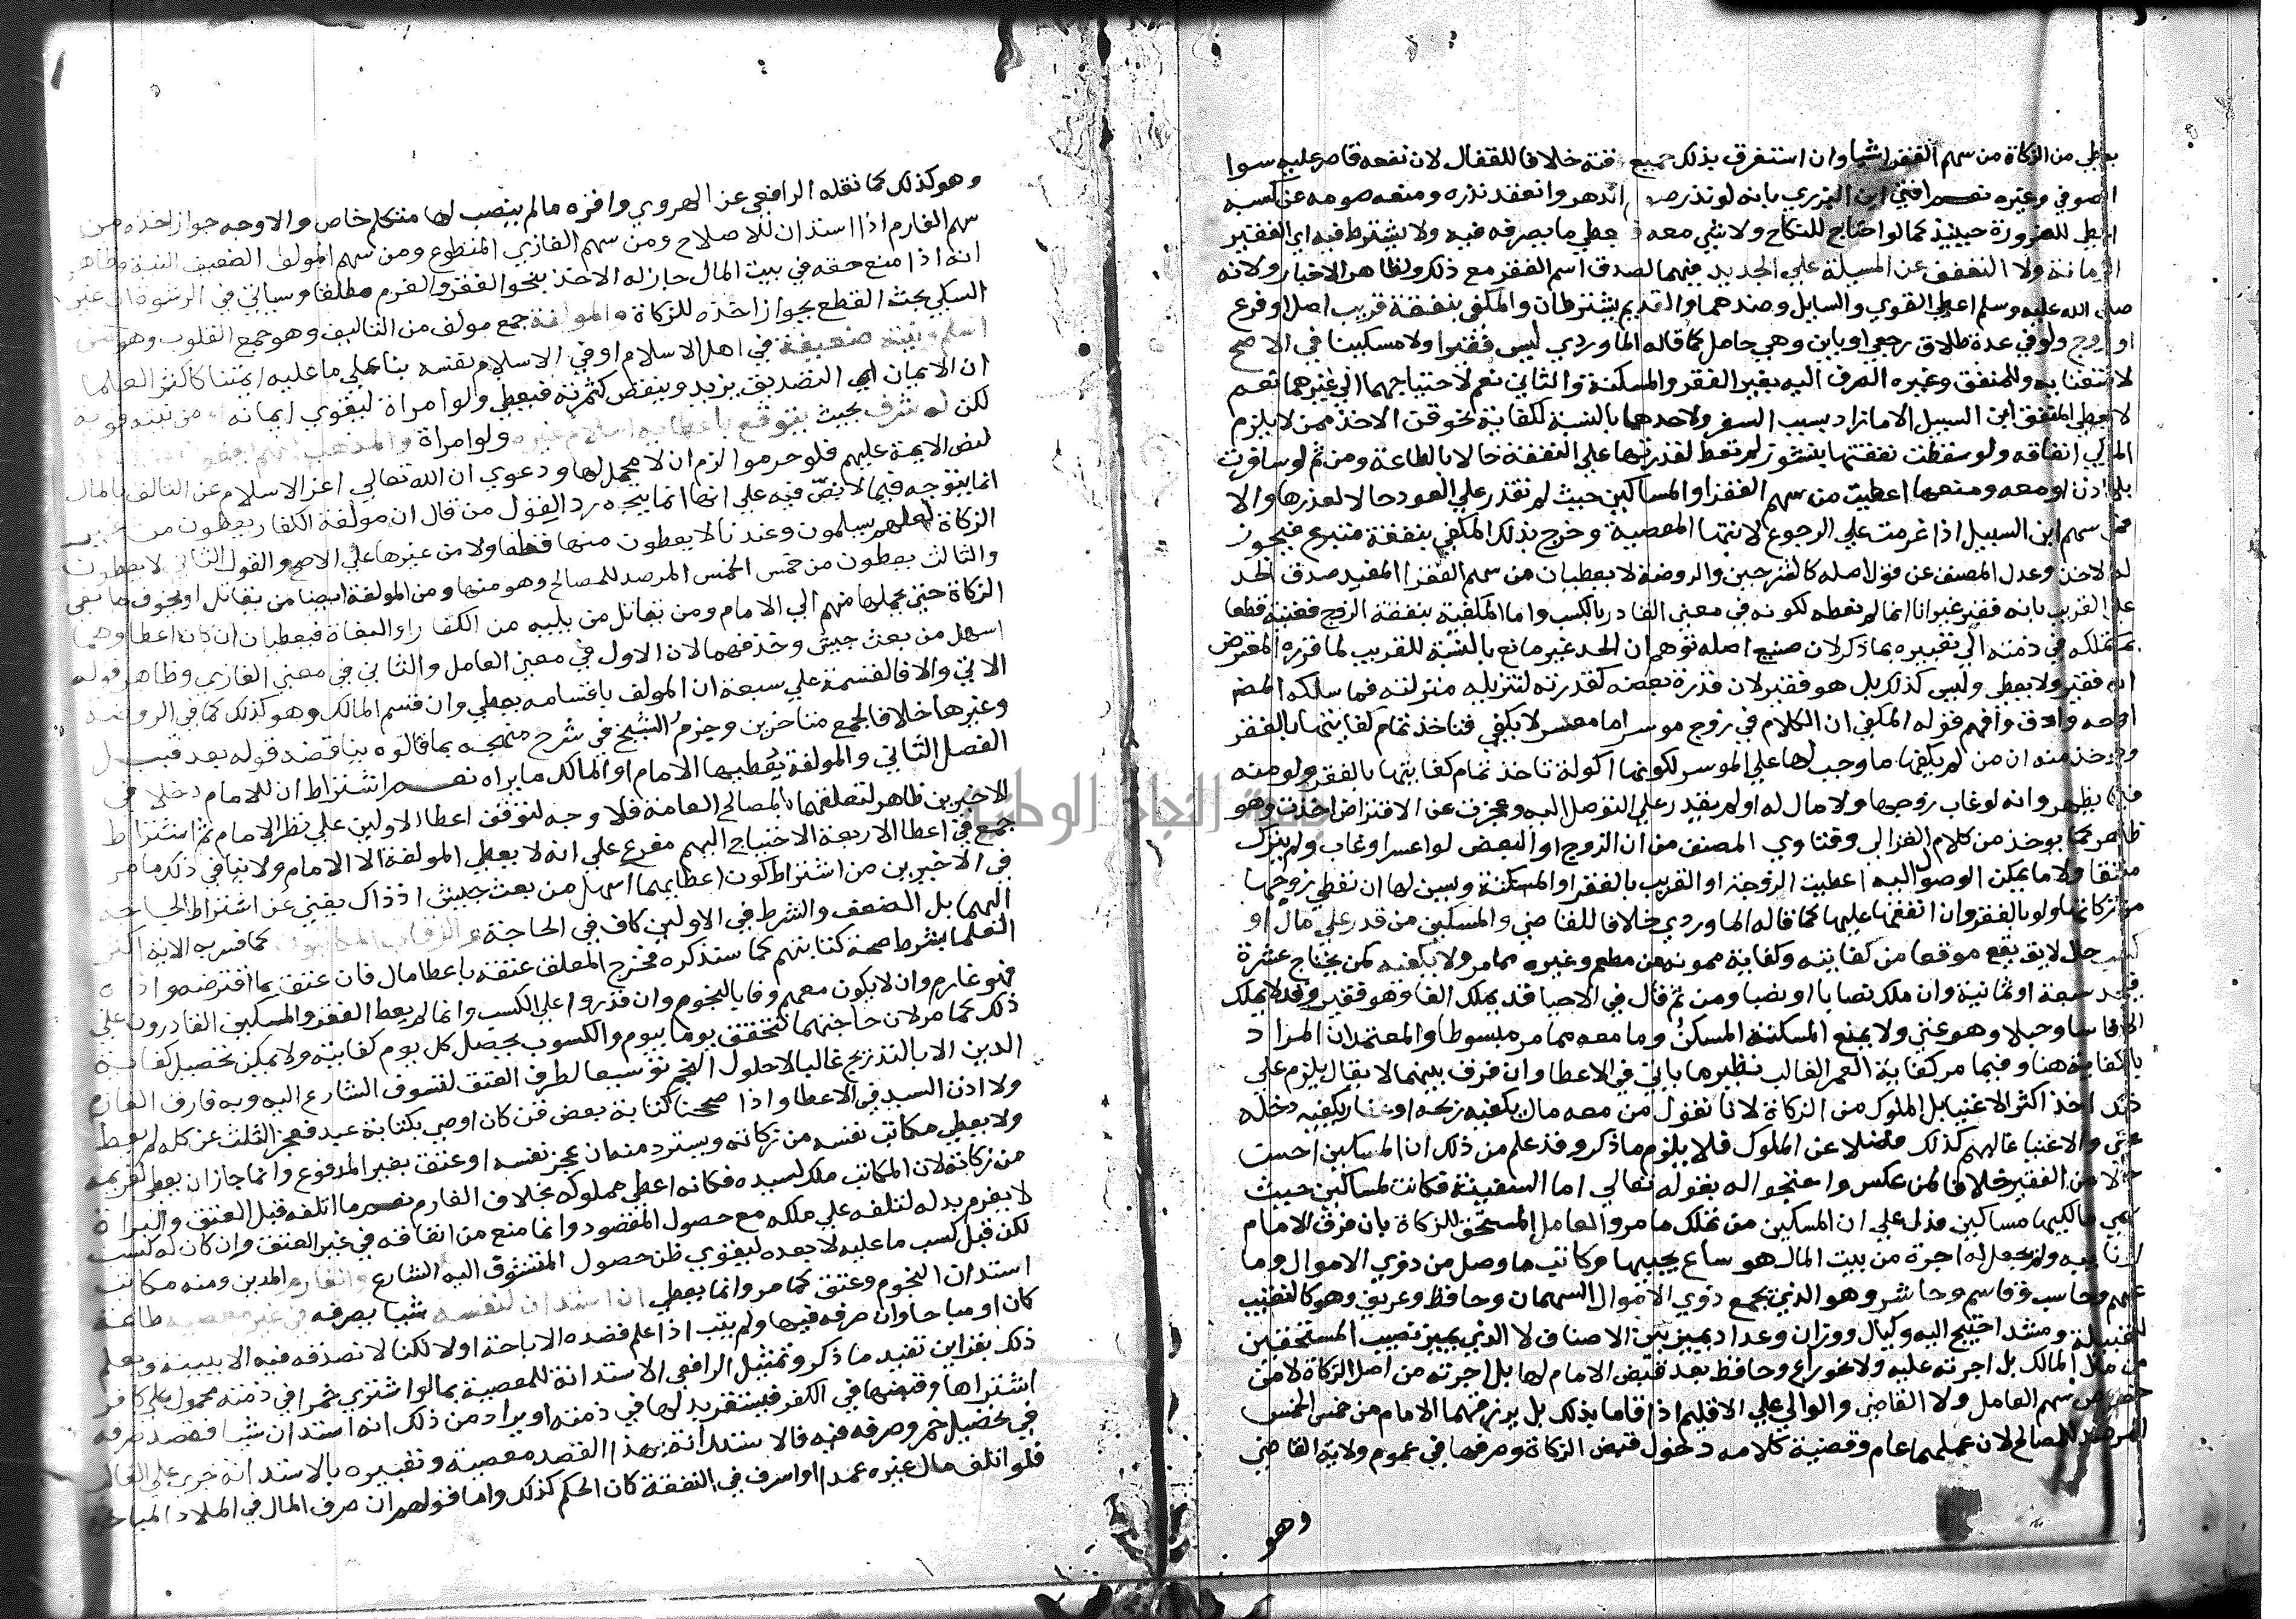 يعطي من الزكاة من سهم الفقرا شيا وان استغرق بذلك جميع وقته خلافا للقفال لان نفعه قاصر عليه سوا
الصوفي وغيره نعم افتي ابن البزري بانه لو نذر صوم الدهر وانعقد نذره ومنعه صومه عن كسبه
اعطي للضرورة حينيذ كما لو احتاج للنكاح ولا شي معه فيعطي ما يصرفه فيه ولا يشترط فيه اي الفقير
الزمانة ولا التعفف عن المسيلة علي الجديد فيهما لصدق اسم الفقر مع ذلك ولظاهر الاخبار ولانه
صلي الله عليه وسلم اعطي القوي والسايل وضدهما والقديم يشترطان والمكفي بنفقة قريب اصل او فرع
او زوج ولو في عدة طلاق رجعي او باين وهي حامل كما قاله الماوردي ليس فقيرا ولا مسكينا في الاصح
لاستغنايه وللمنفق وغيره الصرف اليه بغير الفقر والمسكنة والثاني نعم لاحتياجهما الي غيرهما نعم
لا يعطي المنفق ابن السبيل الا ما زاد بسبب السفر ولاحدهما بالنسبة لكفاية نحو قن الاخذ ممن لا يلزم
المزكي انفاقه ولو سقطت نفقتها بنشوز لم تعط لقدرتها علي النفقة حالا بالطاعة ومن ثم لو سافرت
بلا اذن او معه ومنعها اعطيت من سهم الفقرا والمساكين حيث لم تقدر علي العود حالا لعذرها والا
فمن سهم ابن السبيل اذا عزمت علي الرجوع لانتها المعصية وخرج بذلك المكفي بنفقة متبرع فيجوز
له الاخذ وعدل المصنف عن قول اصله كالمحرر حيث والروضة لا يعطيان من سهم الفقرا المفيد صدق الحد
علي القريب بانه فقير غير انا انما لم نعطه لكونه في معني القادر بالكسب واما المكفية بنفقة الزوج فغنية قطعا
بما تملكه في ذمته الي تعبيره بما ذكر لان صنيع اصله توهم ان الحد غير مانع بالنسبة للقريب لما قرره المعترض
انه فقير ولا يعطي وليس كذلك بل هو فقير لان قدرة بعضه كقدرته لتنزيله منزلته فما سلكه المص
اوجه وادق وافهم قوله المكفي ان الكلام في زوج موسر اما معسر لا يكفي فتاخذ تمام كفايتها بالفقر
ويوخذ منه ان من لم يكفها ما وجب لها علي الموسر لكونها اكولة تاخذ تمام كفايتها بالفقر ولو منه
فيما يظهر وانه لو غاب زوجها ولا مال له او لم يقدر علي التوصل اليه وعجزت عن الاقتراض اخذت وهو
ظاهر كما يوخذ من كلام الغزالي وفتاوي المصنف من ان الزوج او البعض لو اعسر او غاب ولم يترك
منفقا ولا ما يمكن الوصول اليه اعطيت الزوجة او القريب بالفقر او المسكنة ويسن لها ان تعطي زوجها
من زكاتها ولو بالفقر وان انفقها عليها كما قاله الماوردي خلافا للقاضي والمسكين من قدر علي مال او
كسب حلال لايق يقع موقعا من كفايته وكفاية ممونه من مطعم وغيره مما مر ولا يكفيه كمن يحتاج عشرة
فيجد سبعة او ثمانية وان ملك نصابا او نصبا ومن ثم قال في الاحيا قد يملك الفا وهو فقير وقد لا يملك
الا فاسا وحبلا وهو غني ولا يمنع المسكنة المسكن وما معه مما مر مبسوطا والمعتمد ان المراد
بالكفاية هنا وفيما مر كفاية العمر الغالب نظير ما ياتي في الاعطا وان فرق بينهما لا يقال يلزم علي
ذلك اخذ اكثر الاغنيا بل الملوك من الزكاة لانا نقول من معه مال يكفيه ربحه او عقار يكفيه دخله
غني والاغنيا غالبهم كذلك فضلا عن الملوك فلا يلزم ما ذكر وقد علم من ذلك ان المسكين احسن
حالا من الفقير خلافا لمن عكس واحتجوا له بقوله تعالي اما السفينة فكانت لمساكين حيث
سمي مالكيها مساكين فدل علي ان المسكين من تملك ما مر والعامل المستحق للزكاة بان فرق الامام
او نايبه ولم يجعل له اجرة من بيت المال هو ساع يجبيها وكاتب ما وصل من ذوي الاموال وما
عليهم وحاسب وقاسم وحاشر وهو الذي يجمع ذوي الاموال السهمان وحافظ وعريف وهو كالنقيب
للقبيلة ومشد احتيج اليه وكيال ووزان وعداد يميز بين الاصناف لا الذي يميز نصيب المستحقين
من مال المالك بل اجرته عليه ولا نحو راع وحافظ بعد قبض الامام لها بل اجرته من اصل الزكاة لا من
خصوص سهم العامل ولا القاضي والوالي علي الاقليم اذا قاما بذلك بل يرزقهما الامام من خمس الخمس
المرصد للمصالح لان عملهما عام وقضية كلامه دخول قبض الزكاة وصرفها في عموم ولاية القاضي
وهو
وهو كذلك كما نقله الرافعي عن الهروي واقره ما لم ينصب لها متكلم خاص والاوجه جواز اخذه من
سهم الغارم اذا استدان للاصلاح ومن سهم الغازي المتطوع ومن سهم المولف الضعيف النية وظاهر
انه اذا منع حقه في بيت المال جاز له الاخذ بنحو الفقر والغرم مطلقا وسياتي في الرشوة ان غير
السبكي بحث القطع بجواز اخذه للزكاة والمولفة جمع مولف من التاليف وهو جمع القلوب وهو من
اسلم ونيته ضعيفة في اهل الاسلام او في الاسلام نفسه بنا علي ما عليه ايمتنا كاكثر العلما
ان الايمان اي التصديق يزيد وينقص كثمرته فيعطي ولو امراة ليقوي ايمانه او من نيته قوية
لكن له شرف بحيث يتوقع باعطايه اسلام غيره ولو امراة والمذهب انهم يعطون
لنص الاية عليهم فلو حرموا لزم ان لا محمل لها ودعوي ان الله تعالي اعز الاسلام عن التالف بالمال
انما يتوجه فيما لا نص فيه علي انها انما يتجه رد القول من قال ان مولفة الكفار يعطون من غير
الزكاة لعلهم يسلمون وعندنا لا يعطون منها قطعا ولا من غيرها علي الاصح والقول الثاني لا يعطون
والثالث يعطون من خمس الخمس المرصد للمصالح وهو منها ومن المولفة ايضا من يقاتل او يخوف مانعي
الزكاة حتي يحملها منهم الي الامام ومن يقاتل من يليه من الكفار او البغاة فيعطيان ان كان اعطاوهما
اسهل من بعث جيش وحذفهما لان الاول في معني العامل والثاني في معني الغازي وظاهر قوله
الاتي والا فالقسمة علي سبعة ان المولف باقسامه يعطي وان قسم المالك وهو كذلك كما في الروضة
وغيرها خلافا لجمع متاخرين وجزم الشيخ في شرح منهجه بما قالوه يناقضه قوله بعد قبيل
الفصل الثاني والمولفة يعطيها الامام او المالك ما يراه نعم اشتراط ان للامام دخلا في
الاخيرين ظاهر لتعلقهما بالمصالح العامة فلا وجه لتوقف اعطا الاولين علي نظر الامام ثم اشتراط
جمع في اعطا الاربعة الاحتياج اليهم مفرع علي انه لا يعطي المولفة الا الامام ولا ينافي ذكر ما مر
في الاخيرين من اشتراط كون اعطايهما اسهل من بعث جيش اذ ذاك يغني عن اشتراط الحاجة
اليهما بل الضعف والشرط في الاولين كاف في الحاجة والرقاب المكاتبون كما فسر به الاية اكثر
العلما بشرط صحة كتابتهم كما سنذكره فخرج المعلق عتقه باعطا مال فان عتق بما اقترضه واداه
فهو غارم وان لا يكون معهم وفا بالنجوم وان قدروا علي الكسب وانما لم يعط الفقر والمسكين القادرون علي
ذلك كما مر لان حاجتهما تتحقق يوما بيوم والكسوب يحصل كل يوم كفايته ولا يمكن تحصيل كفاية
الدين الا بالتدريج غالبا لا حلول النجم توسيعا لطرق العتق لتشوف الشارع اليه وبه فارق الغارم
ولا اذن السيد في الاعطا واذا صححنا كتابة بعض قن كان اوصي بكتابة عبد فعجز الثلث عن كله لم يعط
ولا يعطي مكاتب نفسه من زكاته ويسترد منه ان عجز نفسه او عتق بغير المدفوع وانما جاز ان يعطي لغريمه
من زكاته لان المكاتب ملك لسيده فكانه اعطي مملوكه بخلاف الغارم نعم ما اتلفه قبل العتق والبراة
لا يغرم بدله لتلفه علي ملكه مع حصول المقصود وانما منع من انفاقه في غير العتق وان كان له كسب
لكن قبل كسب ما عليه لا بعده ليقوي ظن حصول المتشوق اليه الشارع والغارم المدين ومنه مكاتب
استدان النجوم وعتق كما مر وانما يعطي ان استدان لنفسه شيا يصرفه في غير معصية طاعة
كان او مباحا وان صرفه فيها ولم يتب اذا علم قصده الاباحة اولا لكنا لا نصدقه فيه الا ببينة ويعلم
ذلك بقراين تفيد ما ذكر وتمثيل الرافعي الاستدانة للمعصية بما لو اشتري خمرا في ذمته محمول علي كافر
اشتراها وقبضها في الكفر فيستقر بدلها في ذمته او يراد من ذلك انه استدان شيا فقصد صرفه
في تحصيل خمر وصرفه فيه فالاستدانة بهذا القصد معصية وتعبيره بالاستدانة جري علي الغالب
فلو اتلف مال غيره عمدا او اسرف في النفقة كان الحكم كذلك واما قولهم ان صرف المال في الملاذ المباحة